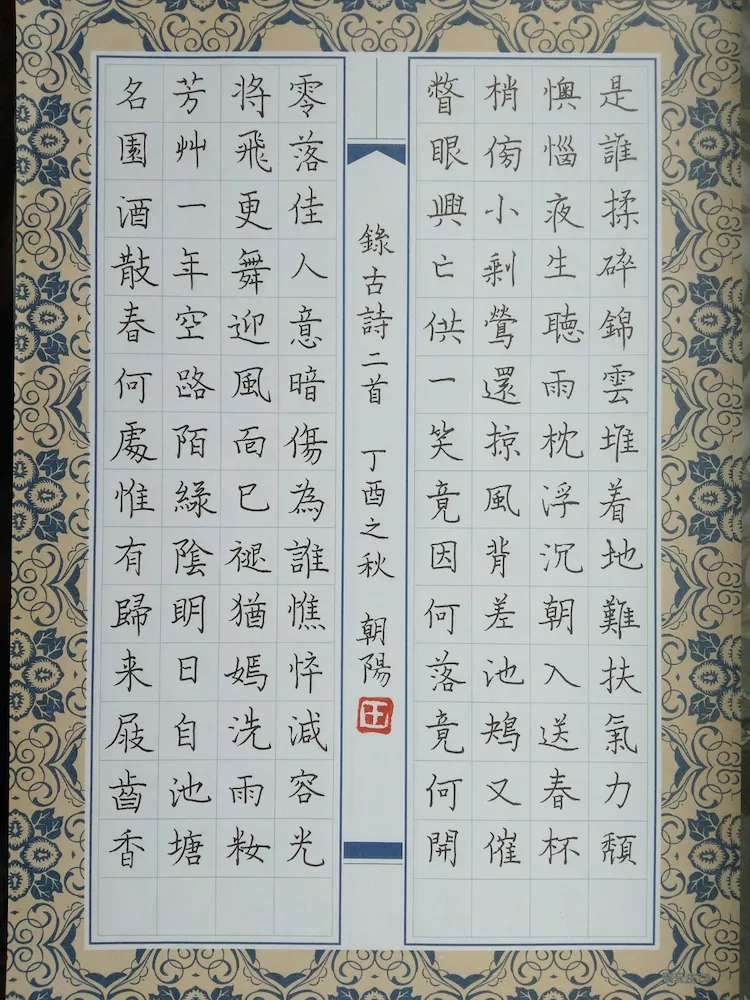 是誰揉碎錦雲堆着地難扶氣力頹
懊惱夜生聽雨枕浮沉朝入送春杯
梢傍小剩鶯還掠風背差池鴂又催
瞥眼興亡供一笑竟因何落竟何開
錄古詩二首 丁酉之秋 朝陽
零落佳人意暗傷為誰憔悴減容光
将飛更舞迎風面已褪猶嫣洗雨籹
芳艸一年空路陌綠陰明日自池塘
名園酒散春何處惟有歸来屐齒香